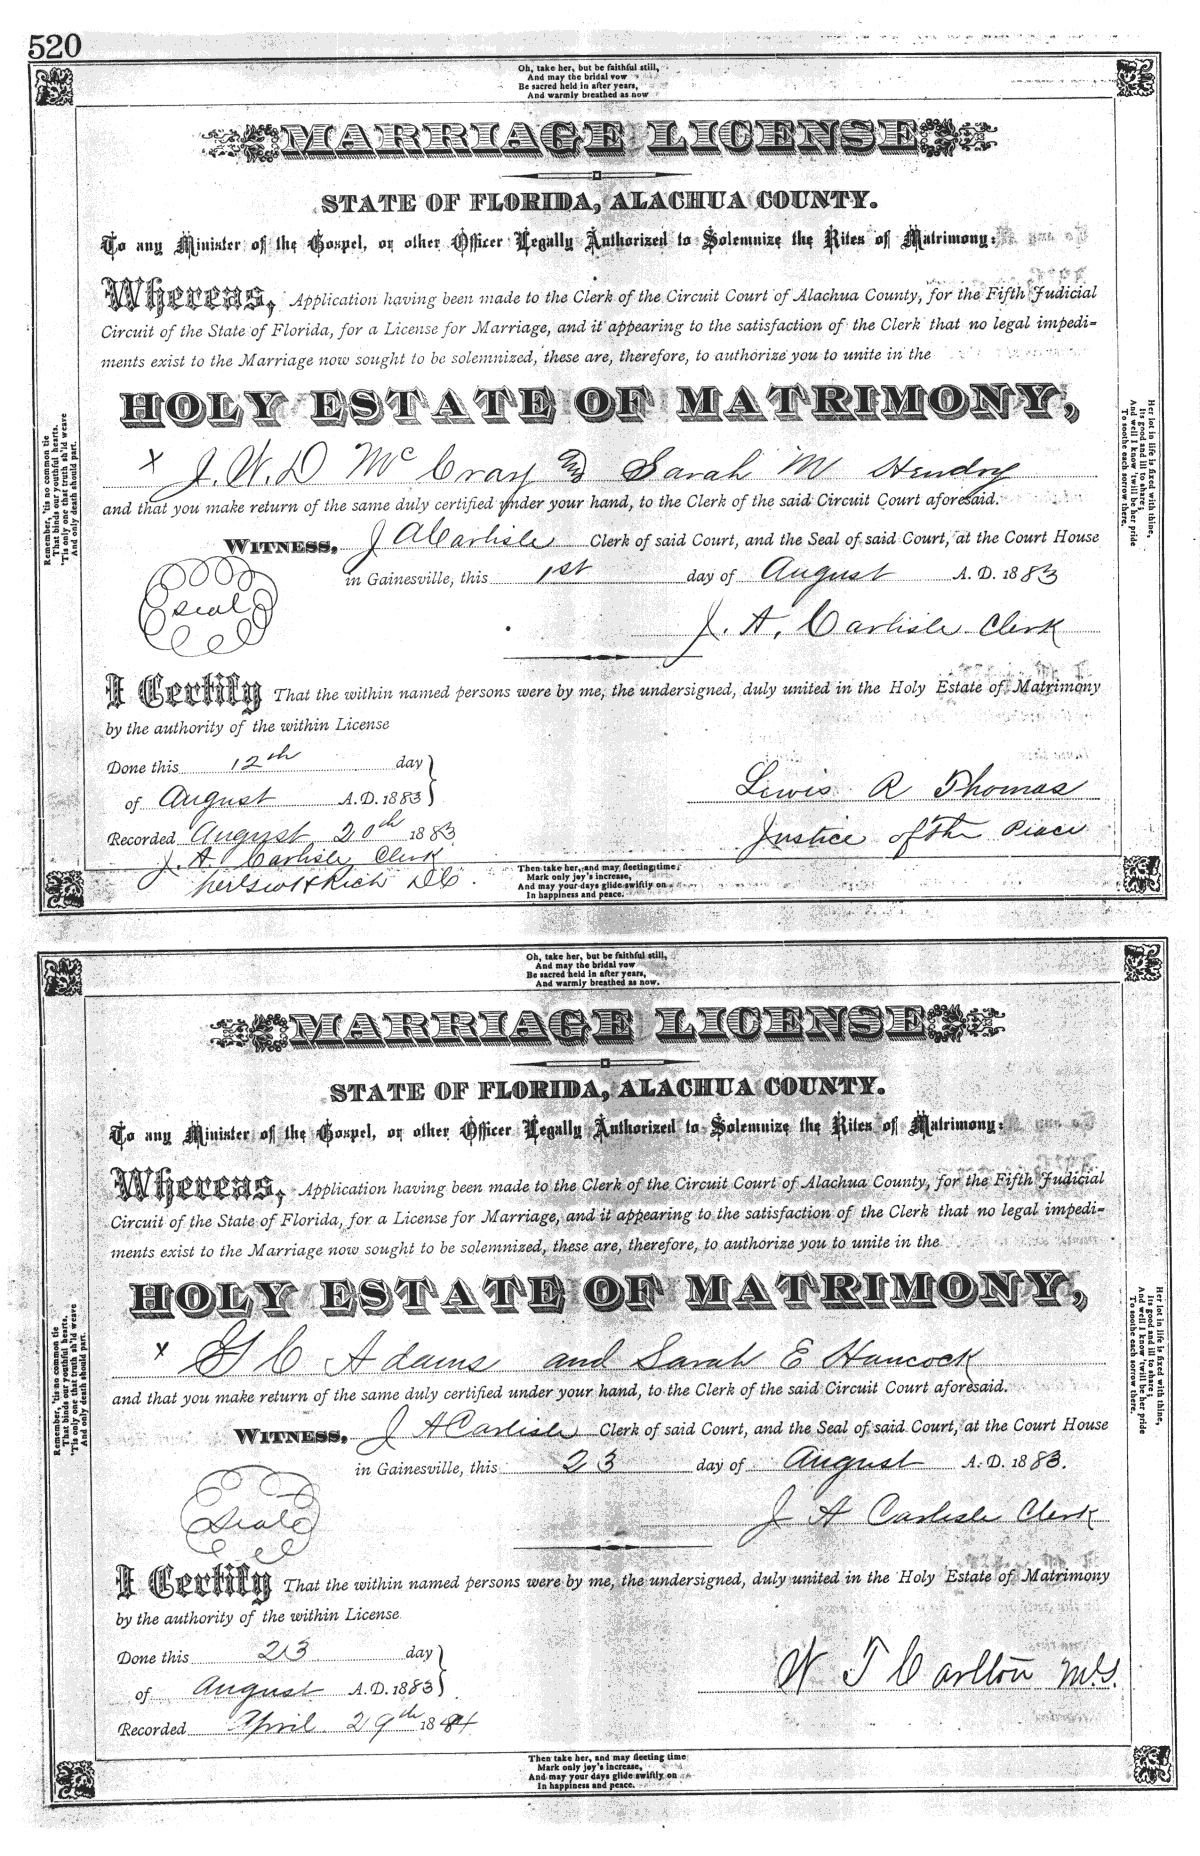 520
Oh, take her, but be faithful still,
And may the bridal vow
Be sacred held in after years,
And warmly breathed as now
MARRIAGE LICENSE
STATE OF FLORIDA, ALACHUA COUNTY.
To any Minister of the Gospel, or other Officer Legally Authorized to Solemnize the Rites of Matrimony:
Whereas, Application having been made to the Clerk of the Circuit Court of Alachua County, for the Fifth Judicial
Circuit of the State of Florida, for a License for Marriage, and it appearing to the satisfaction of the Clerk that no legal impedi-
ments exist to the Marriage now sought to be solemnized, these are, therefore, to authorize you to unite in the
HOLY ESTATE OF MATRIMONY,
x J. W. D McCray and Sarah M Hendry
and that you make return of the same duly certified under your hand, to the Clerk of the said Circuit Court aforesaid.
WITNESS, J A Carlisle Clerk of said Court, and the Seal of said Court, at the Court House
in Gainesville, this 1st day of August A. D. 1883
Seal
J. A. Carlisle Clerk
I Certify That the within named persons were by me, the undersigned, duly united in the Holy Estate of Matrimony
by the authority of the within License
Done this 12th day
of August A.D. 1883
Lewis R Thomas
Recorded August 20th 1883
Justice of the Peace
J. A. Carlisle Clerk
Rich DC.
Then take her, and may fleeting time,
Mark only joy's increase,
And may your days glide swiftly on
In happiness and peace.
Remember, 'tis no common tie
That binds our youthful hearts.
'Tis only one that truth sh'ld weave
And only death should part.
Her lot in life is fixed with thine,
Its good and ill to share;
And well I know 'twill be her pride
To soothe each sorrow there.
Oh, take her, but be faithful still,
And may the bridal vow
Be sacred held in after years,
And warmly breathed as now.
MARRIAGE LICENSE
STATE OF FLORIDA, ALACHUA COUNTY.
To any Minister of the Gospel, or other Officer Legally Authorized to Solemnize the Rites of Matrimony:
Whereas, Application having been made to the Clerk of the Circuit Court of Alachua County, for the Fifth Judicial
Circuit of the State of Florida, for a License for Marriage, and it appearing to the satisfaction of the Clerk that no legal impedi-
ments exist to the Marriage now sought to be solemnized, these are, therefore, to authorize you to unite in the
HOLY ESTATE OF MATRIMONY,
x C Adams and Sarah E Hancock
and that you make return of the same duly certified under your hand, to the Clerk of the said Circuit Court aforesaid.
WITNESS, J A Carlisle Clerk of said Court, and the Seal of said Court, at the Court House
in Gainesville, this 23 day of August A. D. 1883.
Seal
J A Carlisle Clerk
I Certify That the within named persons were by me, the undersigned, duly united in the Holy Estate of Matrimony
by the authority of the within License
Done this 23 day
of August A.D. 1883
W T Carlton M.G.
Recorded April 29th 1884
Then take her, and may fleeting time
Mark only joy's increase,
And may your days glide swiftly on
In happiness and peace.
Remember, 'tis no common tie
That binds our youthful hearts.
'Tis only one that truth sh'ld weave
And only death should part.
Her lot in life is fixed with thine,
Its good and ill to share;
And well I know 'twill be her pride
To soothe each sorrow there.